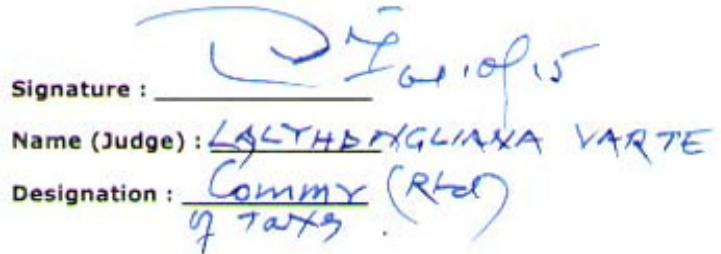 Signature :
Name (Judge) : LALTHANGLIANA VARTE
Designation : Commr (Rtd)
of Taxes.